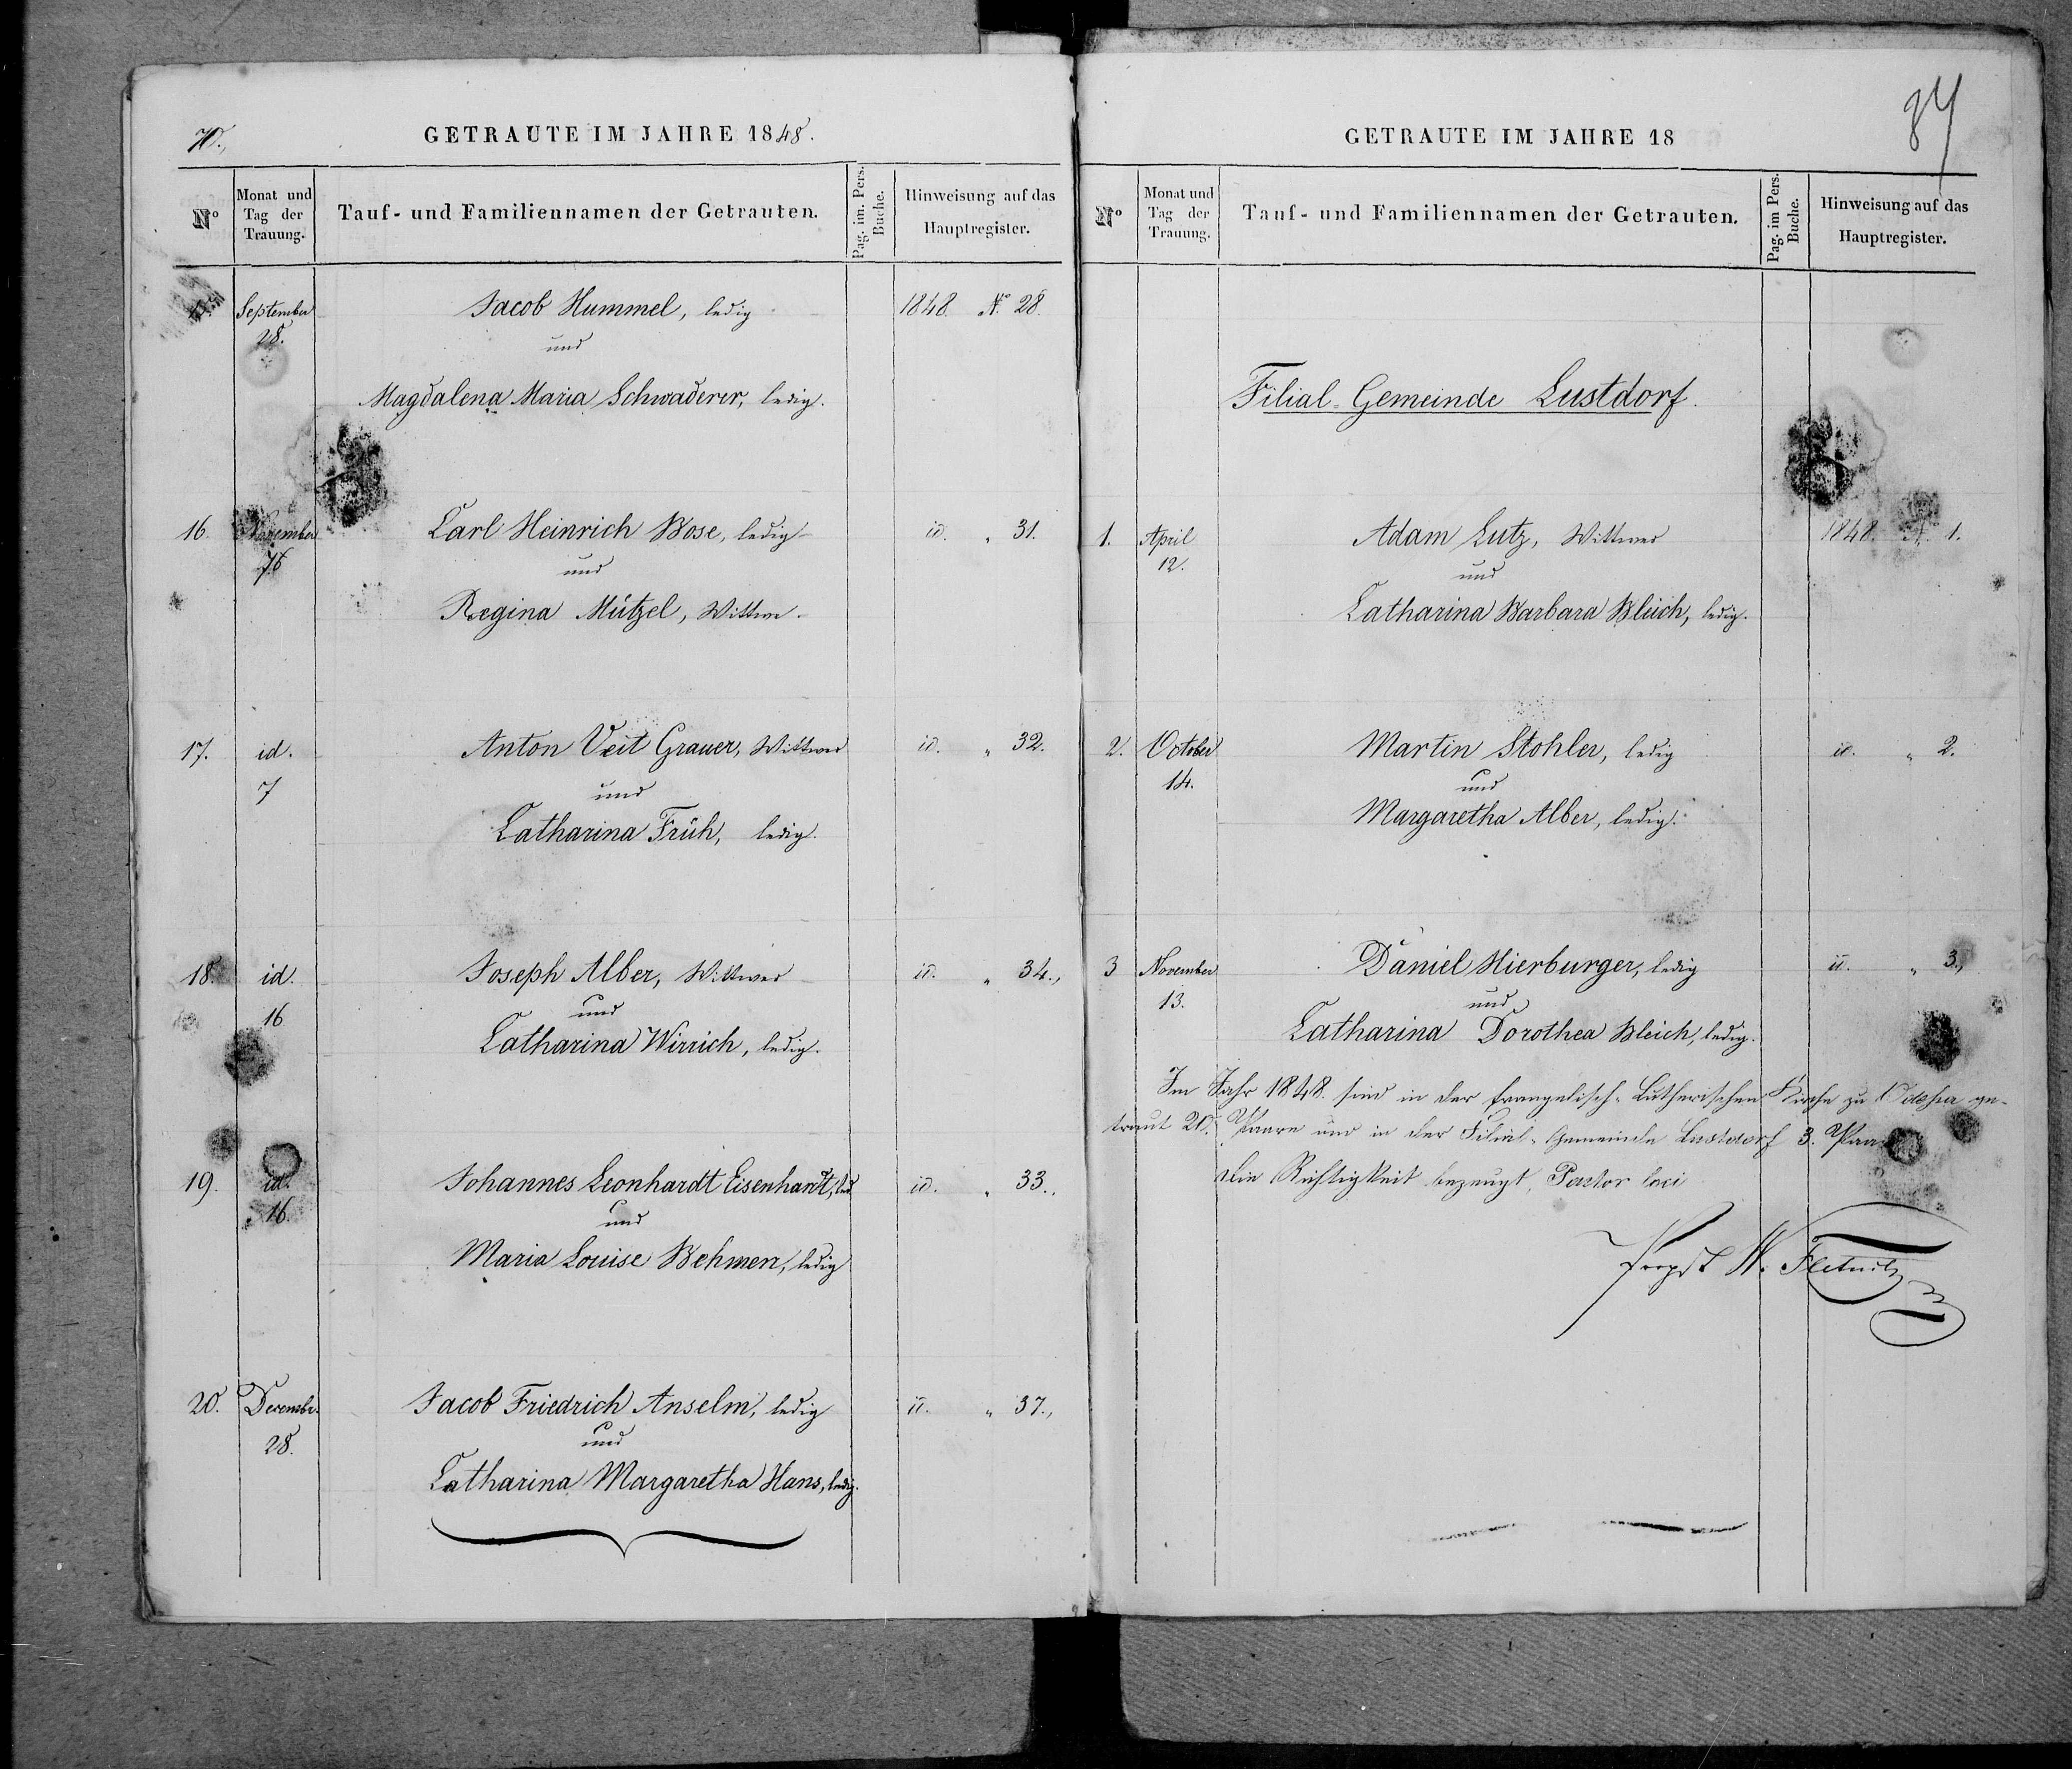 70.,
GETRAUTE IM JAHRE 1848.
Nº
Monat und
Tag der
Trauung.
Tauf- und Familiennamen der Getrauten.
Pag. im. Pers.
Buche.
Hinweisung auf das
Hauptregister.
September Jacob Hummel, ledig 1848. Nº 28.
28.
und
Magdalena Maria Schwaderer, ledig.
16. November Carl Heinrich Bose, ledig id. " 31.
und
Regina Mützel, Wittwe.
17. id. Anton Veit Grauer, Wittwer id. " 32.
7 und
Catharina Früh, ledig.
18. id. Joseph Alber, Wittwer id. " 34.,
16 und
Catharina Wirrich, ledig.
19. id. Johannes Leonhardt Eisenhardt, led id. " 33.,
16. und
Maria Louise Behmen, ledig
20. Decembr. Jacob Friedrich Anselm, ledig id. " 37.,
28. und
Catharina Margaretha Hans, ledig.
84
GETRAUTE IM JAHRE 18
Nº
Monat und
Tag der
Trauung.
Tauf- und Familiennamen der Getrauten.
Pag. im Pers.
Buche.
Hinweisung auf das
Hauptregister.
Filial-Gemeinde Lustdorf.
1. April Adam Lutz, Wittwer 1848. N. 1.
12. und
Catharina Barbara Bleich, ledig.
2. October Martin Stohler, ledig id. " 2.
14. und
Margaretha Alber, ledig.
3 November Daniel Hierburger, ledig id. " 3.,
13. und
Catharina Dorothea Bleich, ledig.
Im Jahr 1848. sind in der Evangelisch-Lutherischen Kirche zu Odessa ge-
traut 20. Paare und in der Filial-Gemeinde Lustdorf 3. Paa
Die Richtigkeit bezeugt, Pastor loci
Propst H. Fletnitz